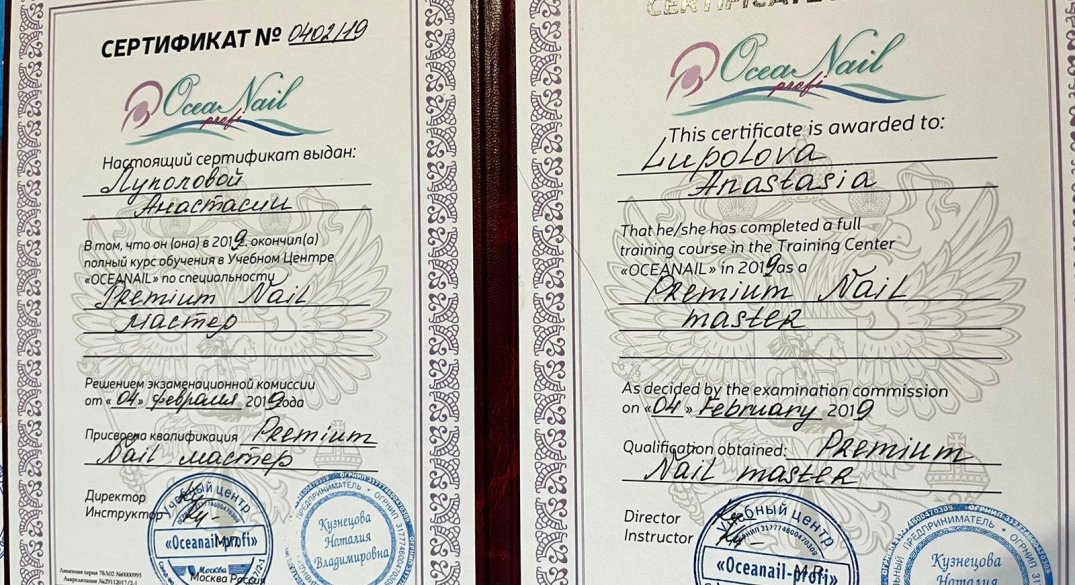 СЕРТИФИКАТ № 0402/19
OceaNail
profi
Настоящий сертификат выдан:
Луполовой
Анастасии
В том, что он (она) в 2019г. окончил(а)
полный курс обучения в Учебном Центре
«OCEANAIL» по специальности
Premium Nail
мастер
Решением экзаменационной комиссии
от «04» февраля 2019года
Присвоена квалификация Premium
Nail мастер
Директор
Инструктор
Учебный центр
«Oceanail-profi»
Москва
Москва Россия
ПРЕДПРИНИМАТЕЛЬ • ОГРНИП 317774600470309
Кузнецова
Наталия
Владимировна
Лицензия серия 78Л02 №0000995
CERTIFICATE
OceaNail
profi
This certificate is awarded to:
Lupolova
Anastasia
That he/she has completed a full
training course in the Training Center
«OCEANAIL» in 2019 as a
Premium Nail
master
As decided by the examination commission
on «04» February 2019
Qualification obtained: Premium
Nail master
Director
Instructor
Учебный центр
ОГРНИП 317774600470309
«Oceanail-profi»
M.P.
ПРЕДПРИНИМАТЕЛЬ
Кузнецова
Наталия